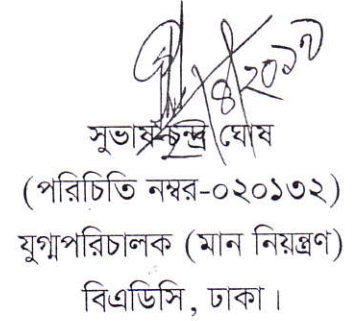 সুভাষ চন্দ্র ঘোষ
(পরিচিতি নম্বর-০২০১৩২)
যুগ্মপরিচালক (মান নিয়ন্ত্রণ)
বিএডিসি, ঢাকা।